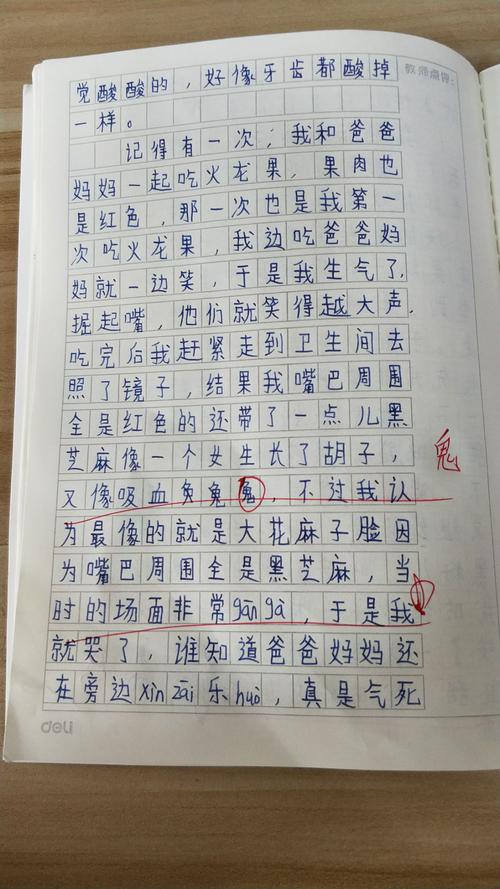 教师点评:
觉酸酸的，好像牙齿都酸掉
一样。
记得有一次，我和爸爸
妈妈一起吃火龙果，果肉也
是红色，那一次也是我第一
次吃火龙果，我边吃爸爸妈
妈就一边笑，于是我生气了，
掘起嘴，他们就笑得越大声，
吃完后我赶紧走到卫生间去
照了镜子，结果我嘴巴周围
全是红色的还带了一点儿黑
芝麻像一个女生长了胡子，
鬼
又像吸血兔兔鬼，不过我认
为最像的就是大花麻子脸因
为嘴巴周围全是黑芝麻，当
时的场面非常gāngà，于是我
就哭了，谁知道爸爸妈妈还
在旁边xìnzāi乐huò，真是气死
deli